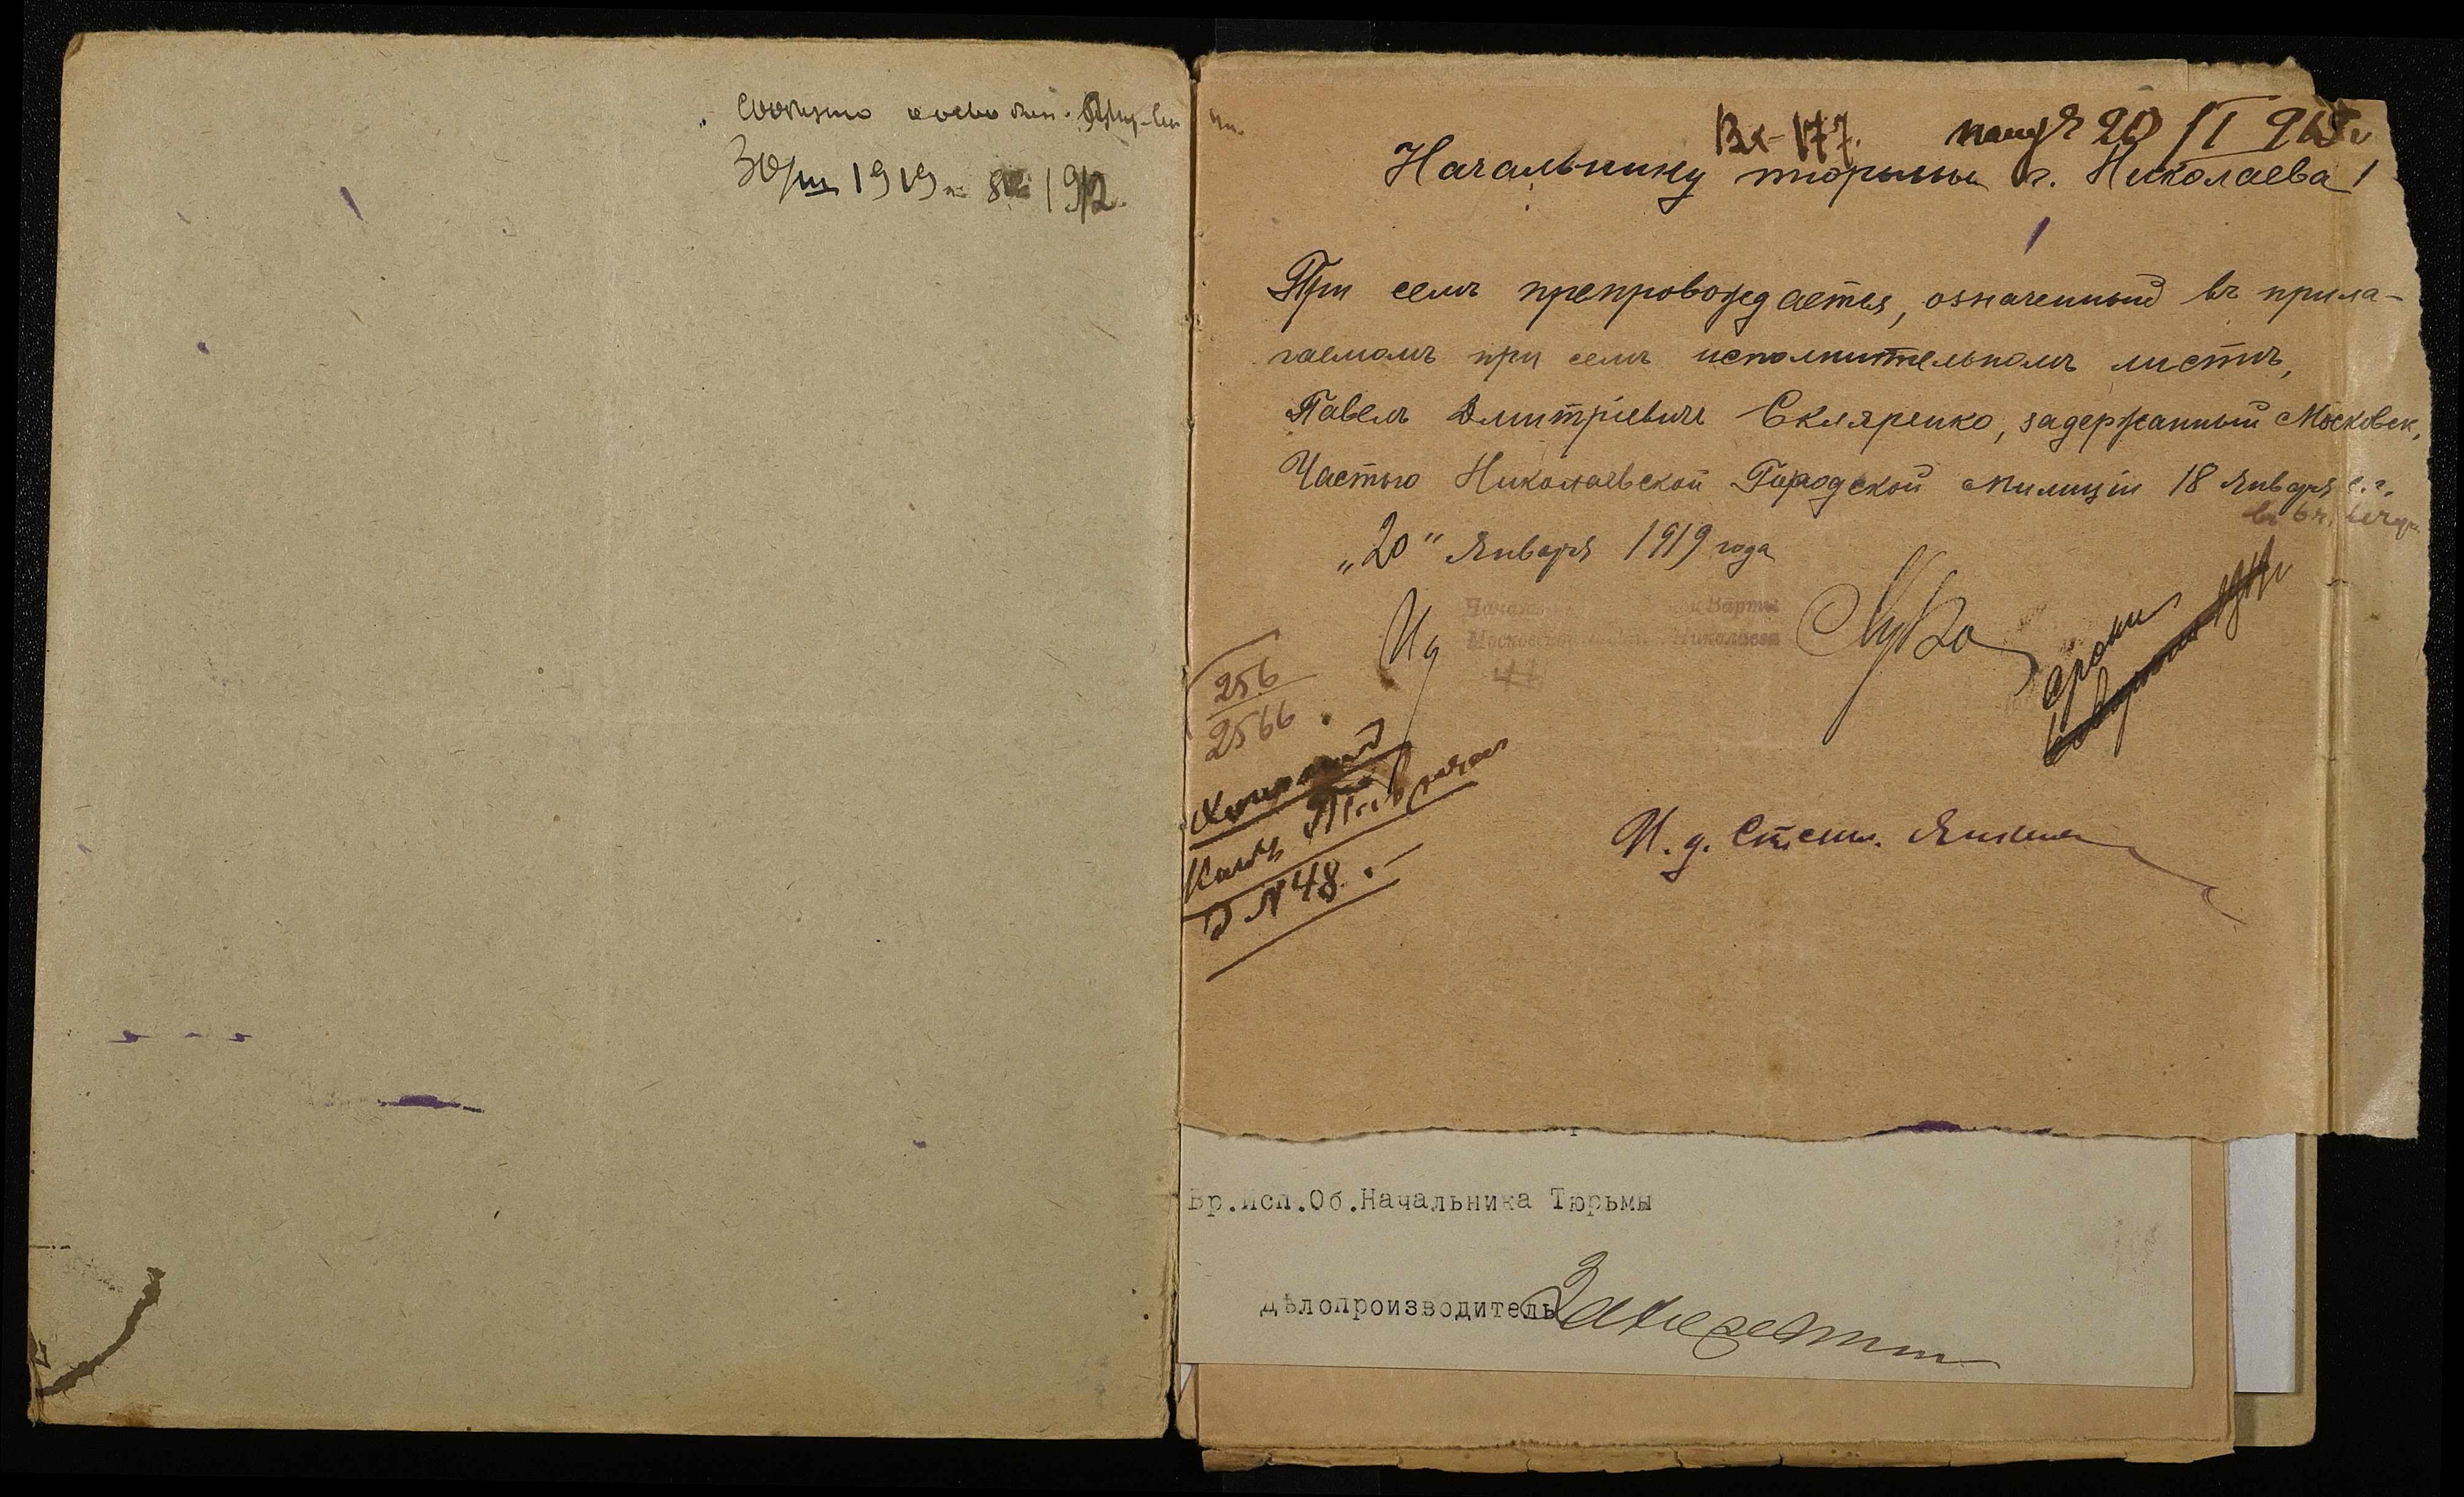 30/III 1919 № 1912.
Вх-177. 20/I 919 г
Начальнику тюрьмы г. Николаева!
При семъ препровождается, означенный въ прила-
гаемомъ при семъ исполнительномъ листѣ,
Павелъ Дмитріевичъ Скляренко, задержанный Московск.
Частью Николаевской Городской Милиціи 18 Января с.г.
въ 6 ч. вечера
„20“ Января 1919 года
Ид
Начальника Варты
Московской Николаева
256
2566
Камъ
Д №48.
И. д. Січеш.
Вр.Исп.Об.Начальника Тюрьмы
Дѣлопроизводитель